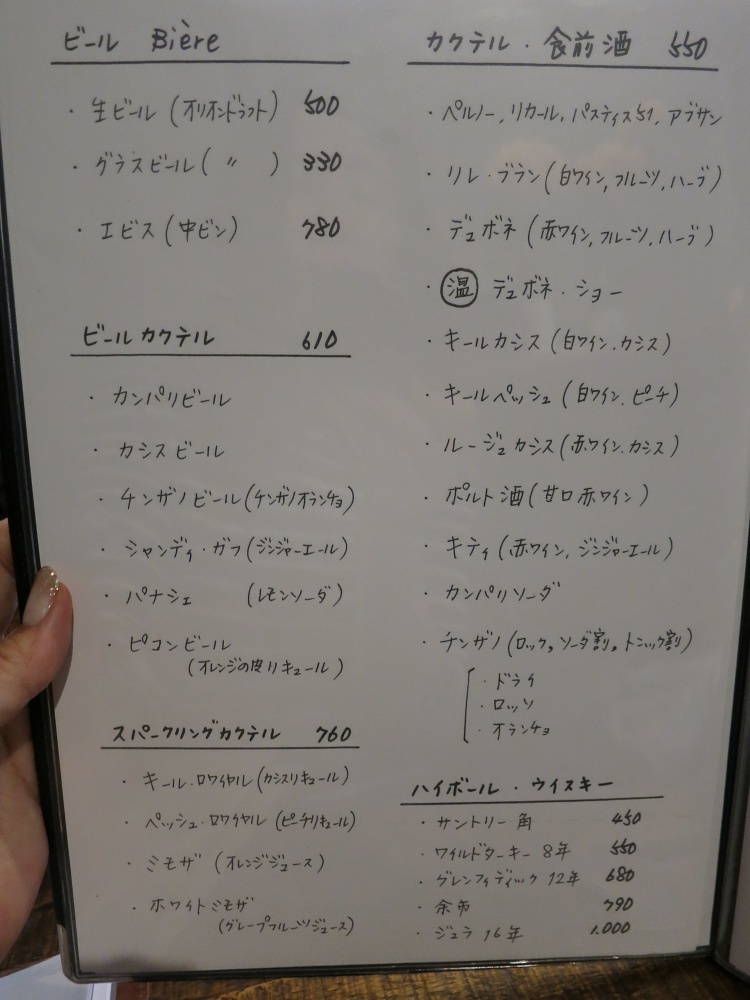 ビール Bière
・生ビール(オリオンドラフト) 500
・グラスビール( 〃 ) 330
・エビス(中ビン) 780
ビールカクテル 610
・カンパリビール
・カシスビール
・チンザノビール(チンザノオランチョ)
・シャンディ・ガフ(ジンジャーエール)
・パナシェ (レモンソーダ)
・ピコンビール
(オレンジの皮リキュール)
スパークリングカクテル 760
・キール・ロワイヤル(カシスリキュール)
・ペッシュ・ロワイヤル(ピーチリキュール)
・ミモザ(オレンジジュース)
・ホワイトミモザ
(グレープフルーツジュース)
カクテル・食前酒 550
・ペルノー,リカール,パスティス51,アブサン
・リレ・ブラン(白ワイン,フルーツ,ハーブ)
・デュボネ(赤ワイン,フルーツ,ハーブ)
・温 デュボネ・ショー
・キールカシス(白ワイン.カシス)
・キールペッシュ(白ワイン.ピーチ)
・ルージュカシス(赤ワイン.カシス)
・ポルト酒(甘口赤ワイン)
・キティ(赤ワイン,ジンジャーエール)
・カンパリソーダ
・チンザノ(ロック,ソーダ割,トニック割)
・ドライ
・ロッソ
・オランチョ
ハイボール・ウイスキー
・サントリー角 450
・ワイルドターキー8年 550
・グレンフィディック12年 680
・余市 790
・ジュラ16年 1.000